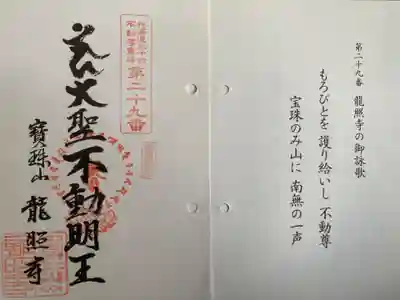 第二十九番 龍照寺の御詠歌
もろびとを 護り給いし 不動尊
宝珠のみ山に 南無の一声
第二十九番
大聖不動明王
寳珠山 龍照寺